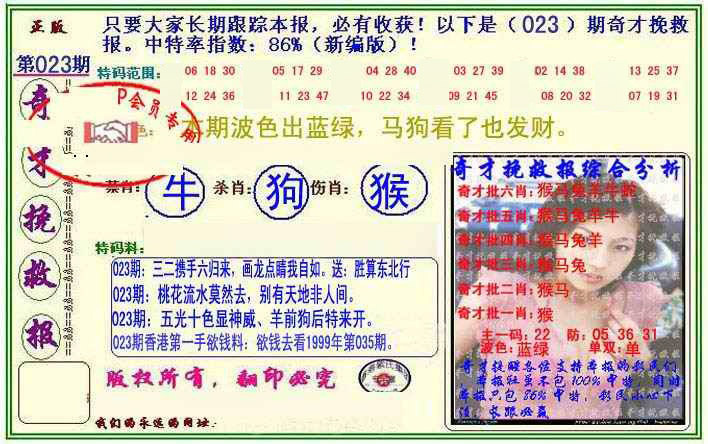 正版
只要大家长期跟踪本报，必有收获！以下是（023）期奇才挽救
报。中特率指数：86%（新编版）！
第023期
特码范围：
06 18 30 05 17 29 04 28 40 03 27 39 02 14 38 13 25 37
12 24 36 11 23 47 10 22 34 09 21 45 08 20 32 07 19 31
奇才挽救报
P会员专用
色：本期波色出蓝绿，马狗看了也发财。
禁肖：牛 杀肖：狗 伤肖：猴
特码料：
023期：三二携手六归来，画龙点睛我自如。送：胜算东北行
023期：桃花流水莫然去，别有天地非人间。
023期：五光十色显神威、羊前狗后特来开。
023期香港第一手欲钱料：欲钱去看1999年第035期。
版权所有，翻印必究
我们的永远的网址：
奇才挽救报综合分析
奇才批六肖：猴马兔羊牛蛇
奇才批五肖：猴马兔羊牛
奇才批四肖：猴马兔羊
奇才批三肖：猴马兔
奇才批二肖：猴马
奇才批一肖：猴
主一码：22 防：05 36 31
波色：蓝绿 单双：单
奇才提醒各位支持本报的彩民们
，本报往虽不包100%中特，同时
本报只包86%中特，彩民小心下
注，长跟必赢